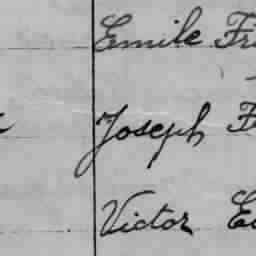 Emile Fr
Joseph F
Victor E